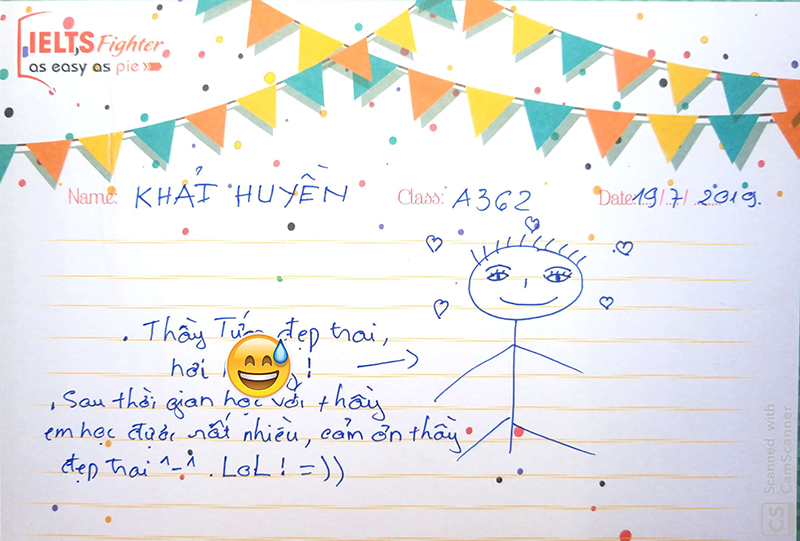 IELTS Fighter
as easy as pie
Name: KHẢI HUYỀN Class: A362 Date: 19/7/2019.
. Thầy đẹp trai,
hơi !
. Sau thời gian học với thầy
em học được rất nhiều, cảm ơn thầy
đẹp trai ^-^ . LoL ! =))
CS Scanned with
CamScanner